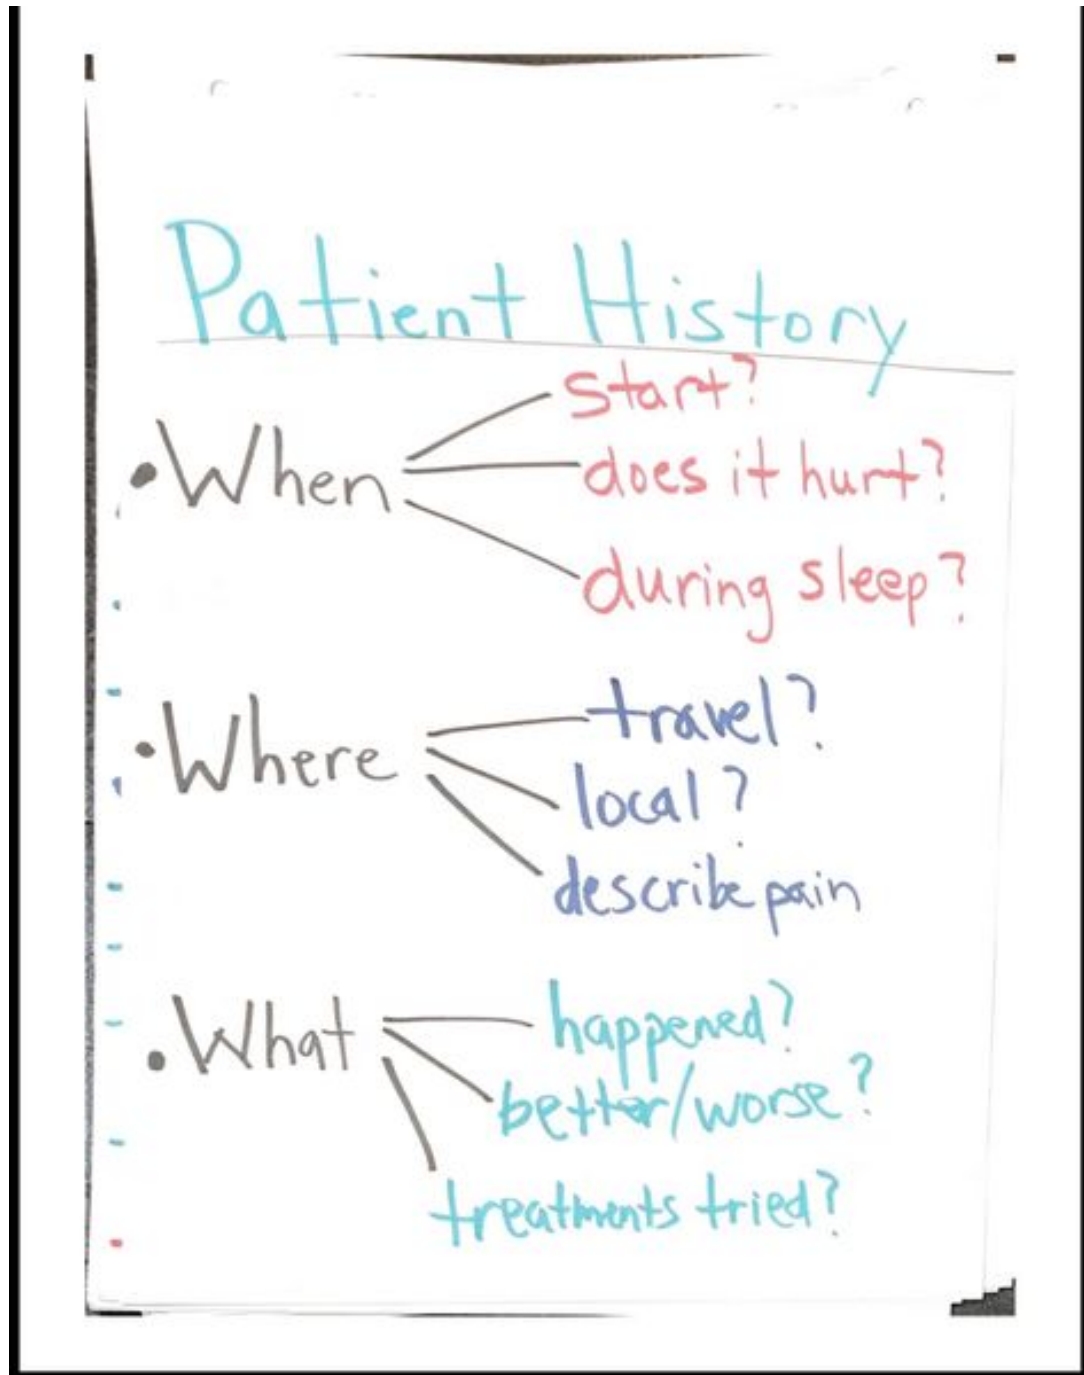 Patient History
• When
start?
does it hurt?
during sleep?
• Where
travel?
local?
describe pain
• What
happened?
better/worse?
treatments tried?